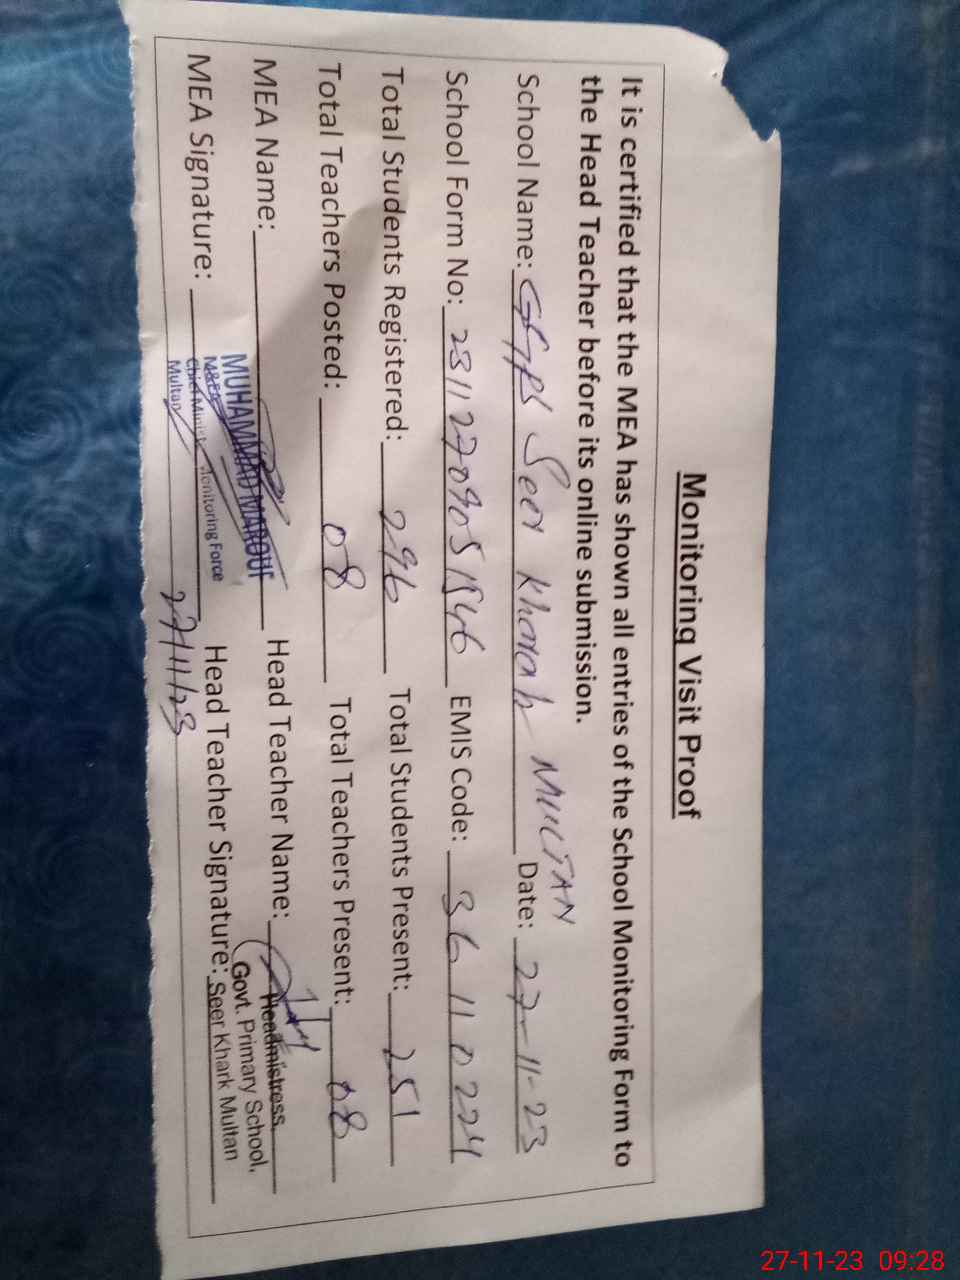 Monitoring Visit Proof
It is certified that the MEA has shown all entries of the School Monitoring Form to
the Head Teacher before its online submission.
School Name: GGPS Seer Khark MULTAN Date: 27-11-23
School Form No: EMIS Code: 36110224
Total Students Registered: 296 Total Students Present: 251
Total Teachers Posted: 08 Total Teachers Present: 08
MEA Name: MUHAMMAD MAROUF Head Teacher Name: Headmistress
Govt. Primary School,
MEA Signature: Head Teacher Signature: Seer Khark Multan
Monitoring Force
Multan
27/11/23
27-11-23 09:28